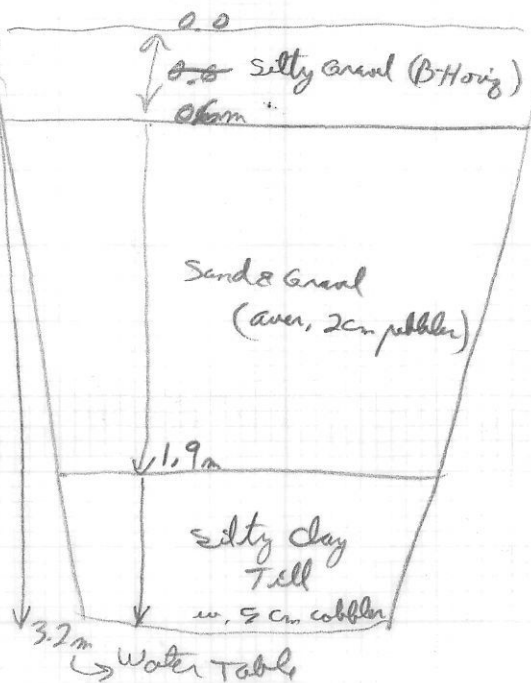 0.0
0.0 Silty Gravel (B-Horiz)
0.6m
Sand & Gravel
(aver. 2cm pebbles)
1.9m
Silty Clay
Till
w. 5 cm cobbles
3.2m
Water Table